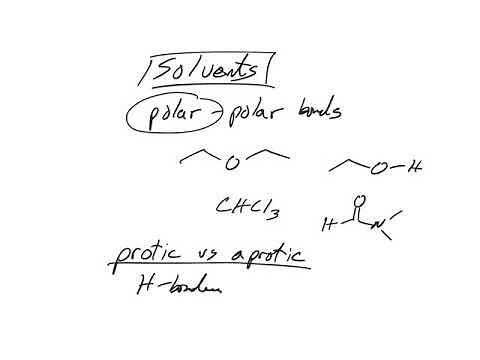 Solvents
polar - polar bonds
O O-H
CHCl3 O
H N
protic vs aprotic
H-bonding